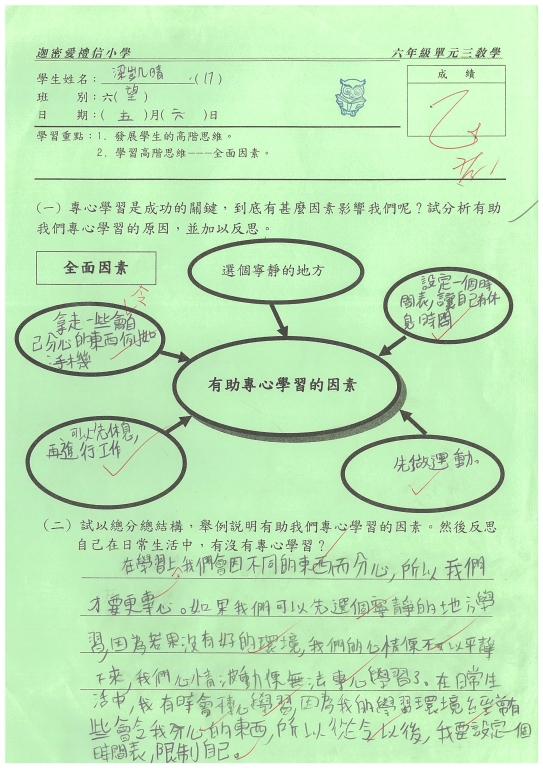 迦密愛禮信小學 六年級單元三教學
學生姓名：梁凱晴 (17)
成績
班 別：六(望)
日 期：(五)月(六)日
乙
學習重點：1. 發展學生的高階思維。
2. 學習高階思維---全面因素。
(一) 專心學習是成功的關鍵，到底有甚麼因素影響我們呢？試分析有助
我們專心學習的原因，並加以反思。
全面因素
選個寧靜的地方
設定一個時
間表，讓自己有休
息時間
令
拿走一些會自
己分心的東西例如
手機
有助專心學習的因素
可以先休息，
再進行工作
先做運動。
(二) 試以總分總結構，舉例說明有助我們專心學習的因素。然後反思
自己在日常生活中，有沒有專心學習？
在學習上我們會因不同的東西而分心，所以我們
才要更專心。如果我們可以先選個寧靜的地方學
習，因為若果沒有好的環境，我們的心情便不可以平靜
下來，我們心情波動便無法專心學習了。在日常生
活中，我有時會專心學習，因為我的學習環境經常有
些會令我分心的東西，所以從今以後，我要設定一個
時間表，限制自己。